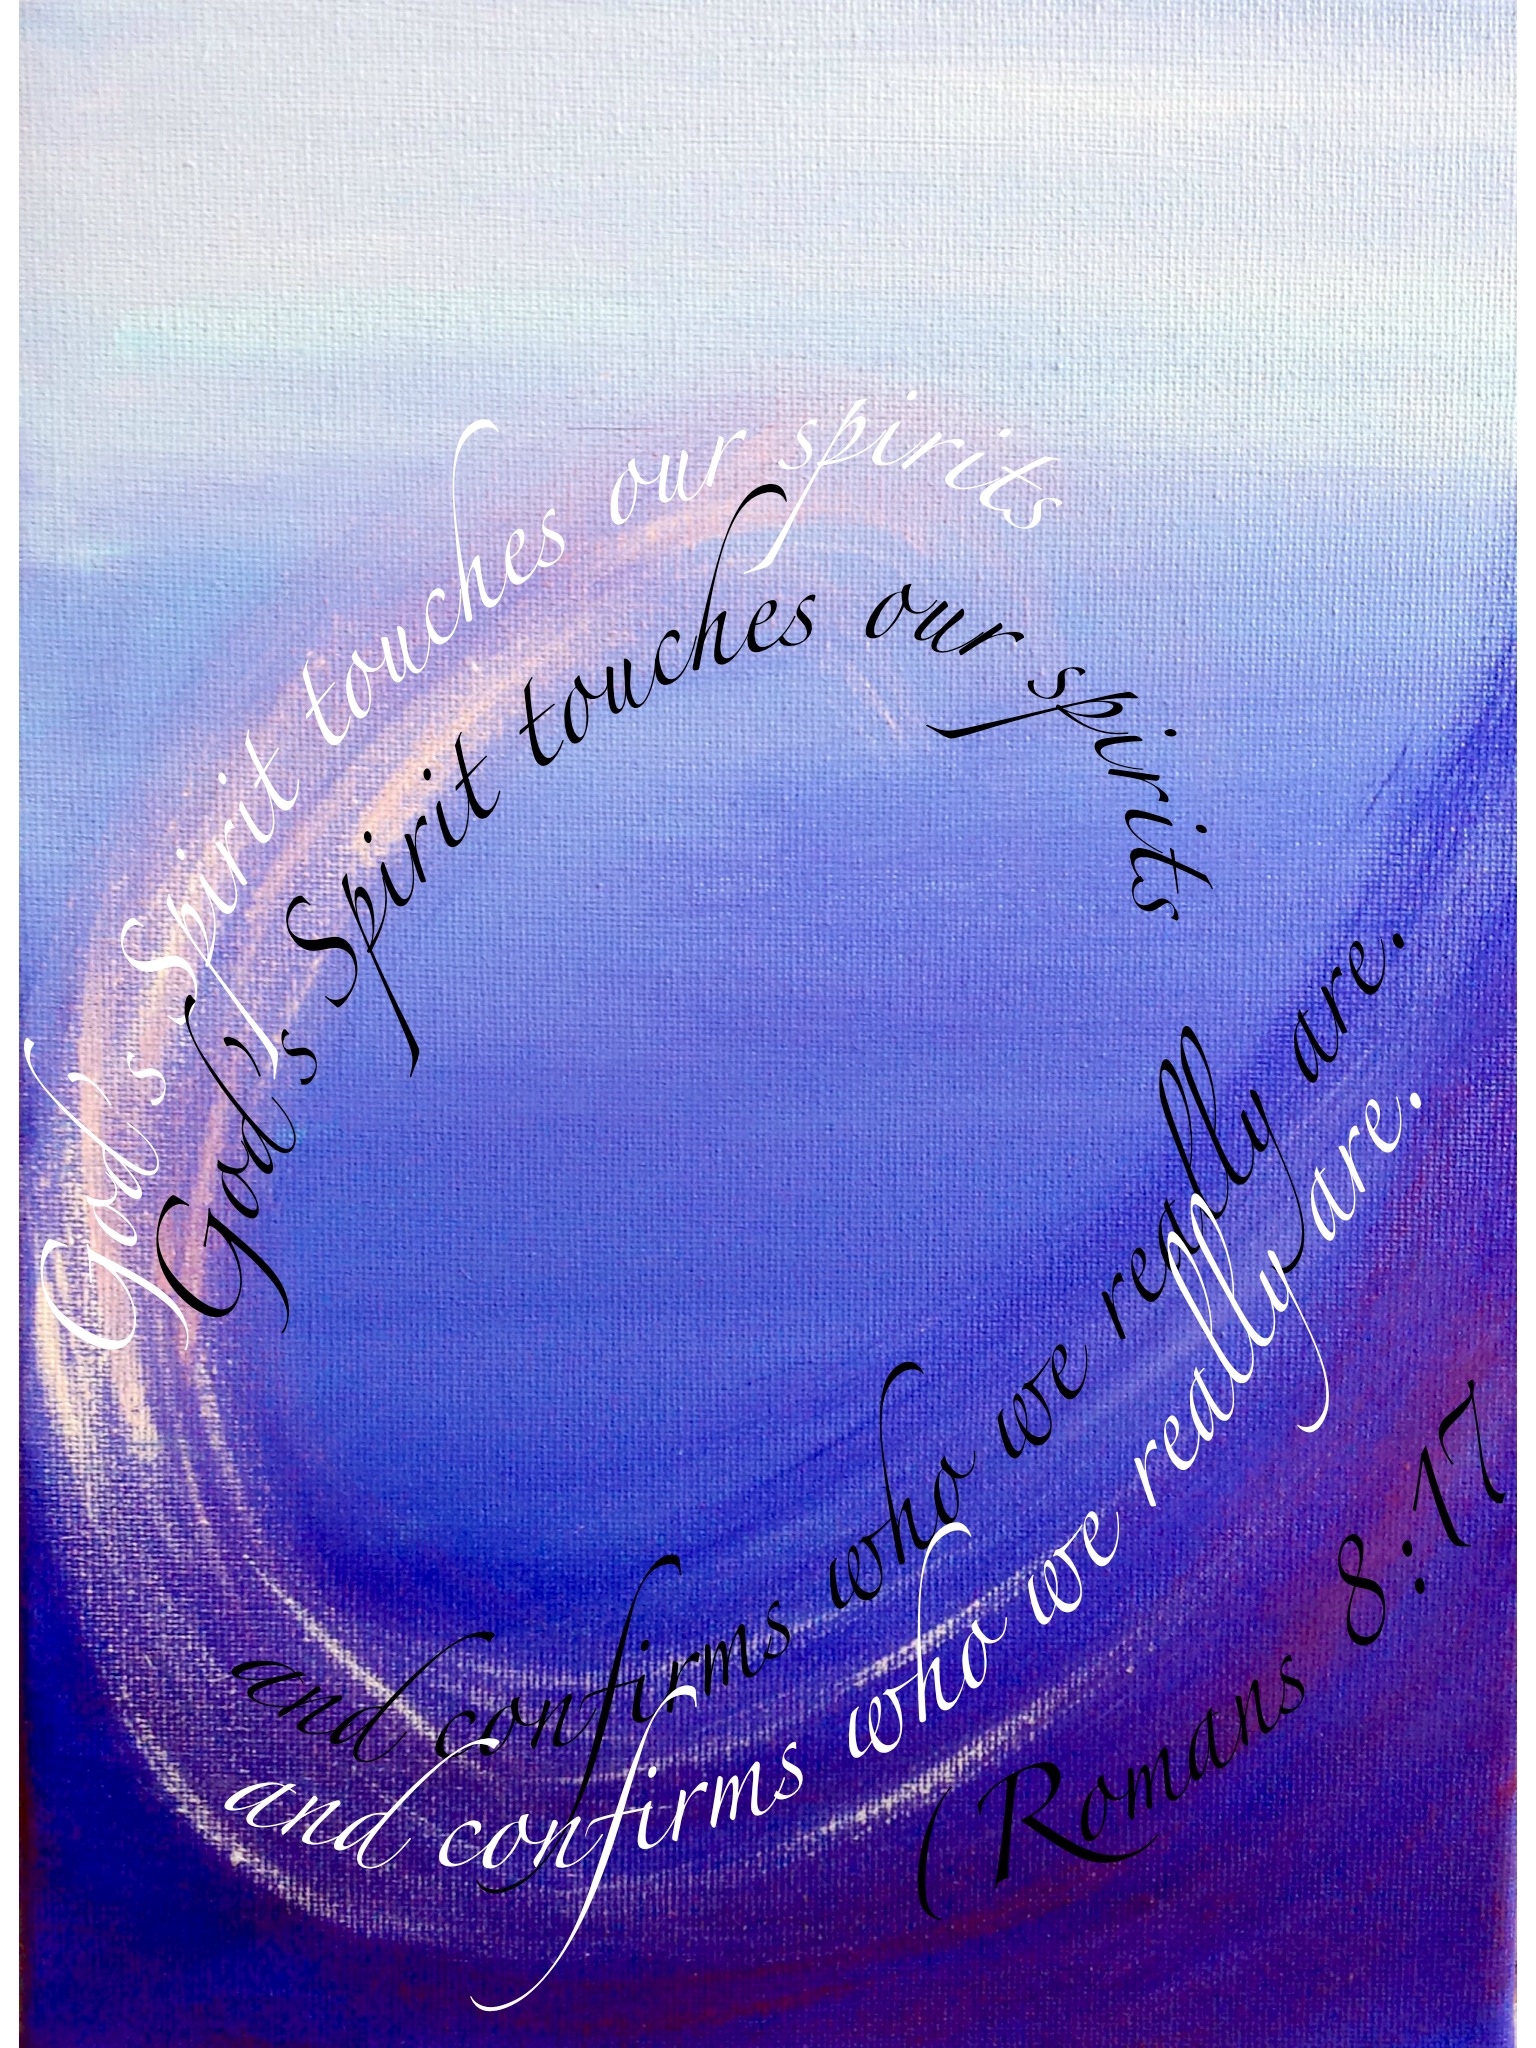 God's Spirit touches our spirits
God's Spirit touches our spirits
and confirms who we really are.
and confirms who we really are.
(Romans 8:17